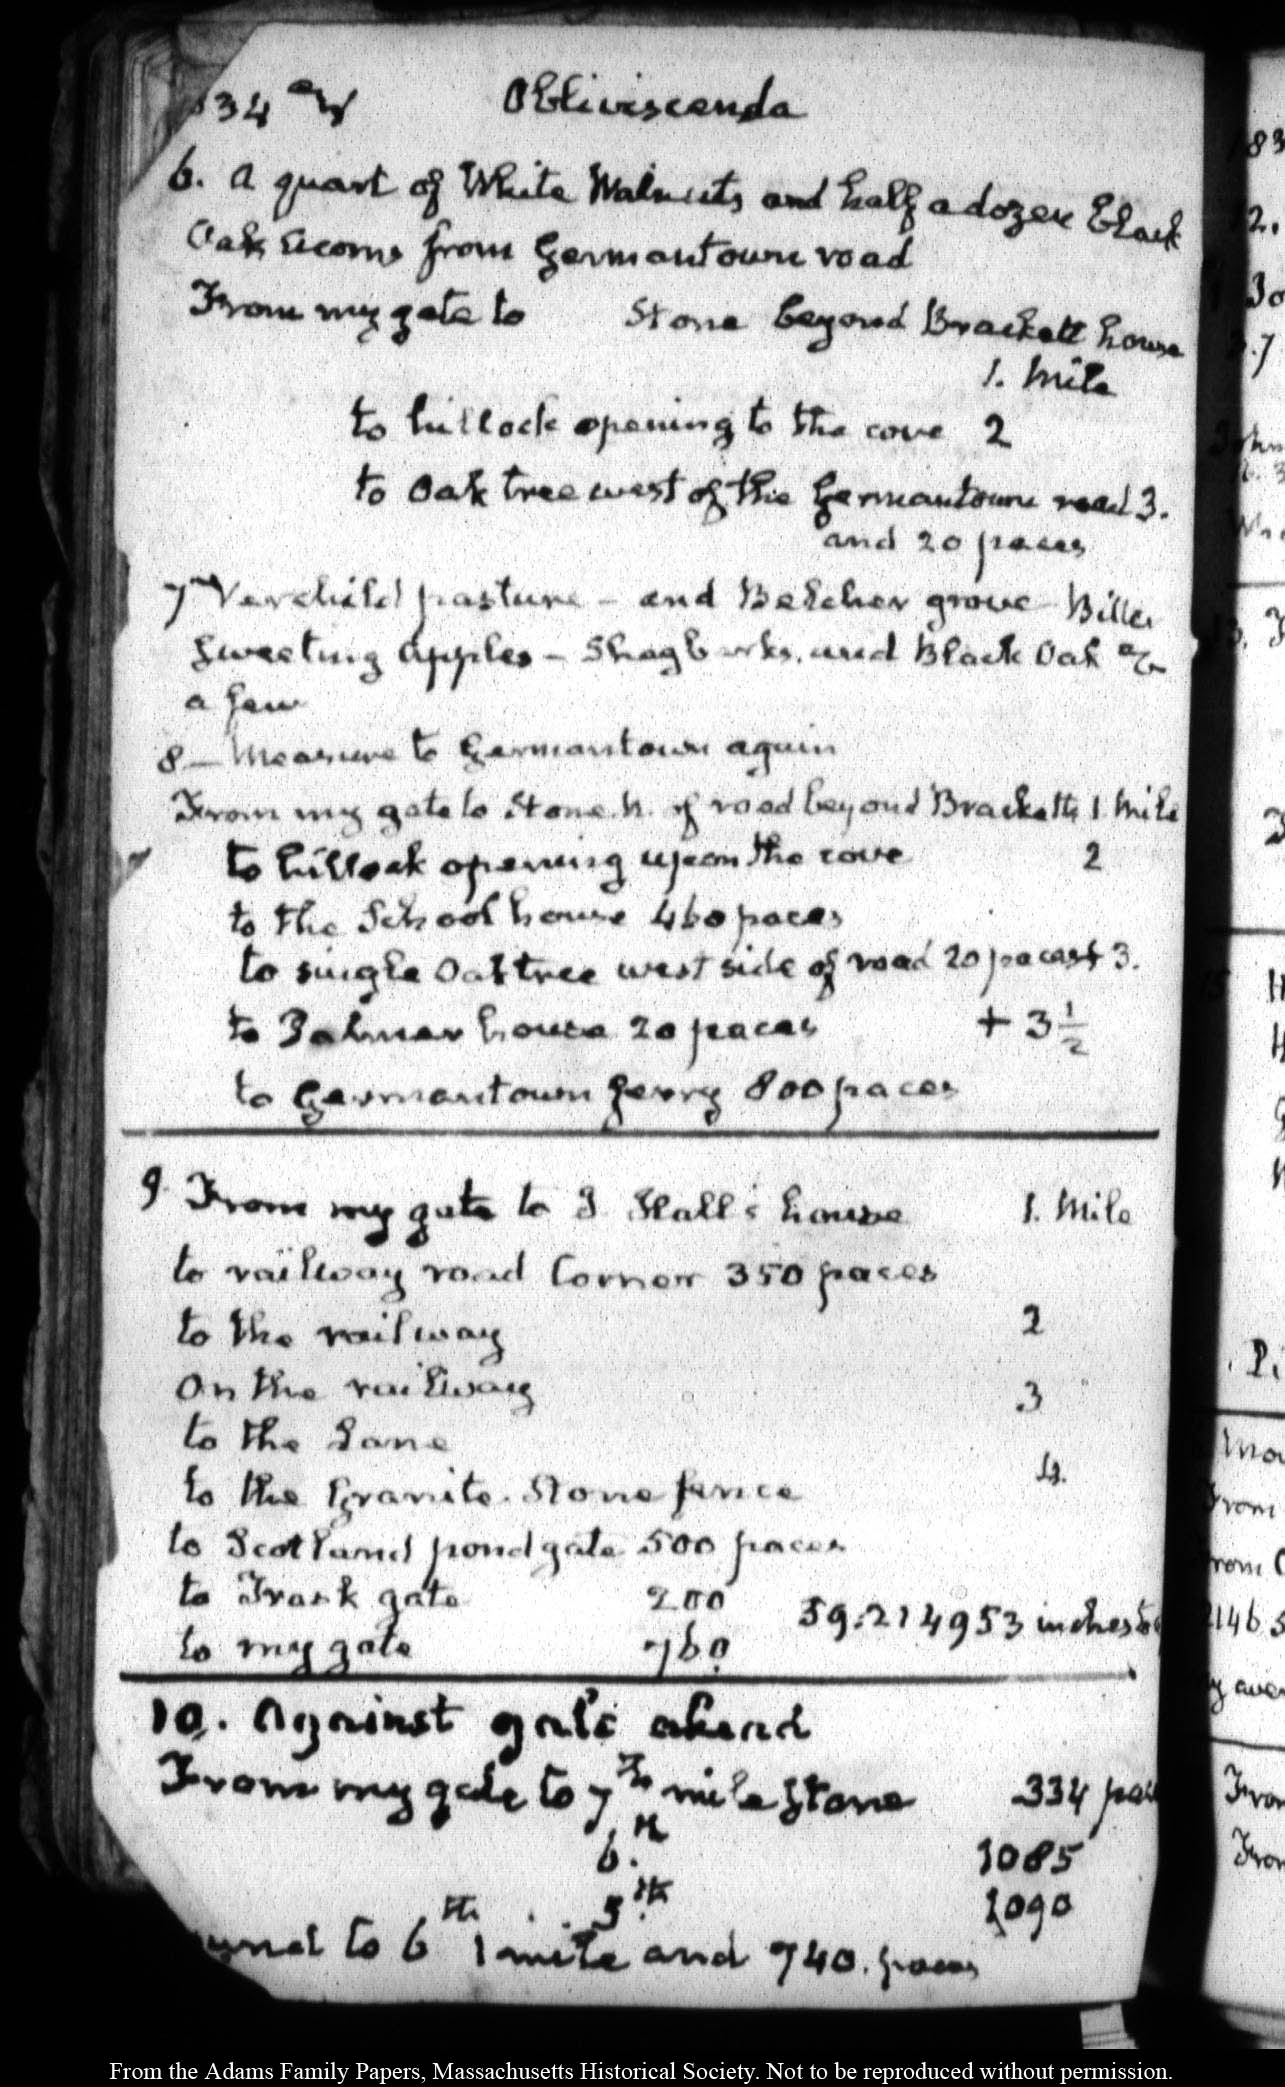 34 Obliviscenda
6. A quart of White Walnuts and half a dozen black
Oak acorns from Germantown road
From my gate to Stone beyond Brackett house
1. Mile
to hillock opening to the cove 2
to Oak tree west of the Germantown road 3.
and 20 paces
7 Verchild pasture - and Belcher grove
Sweeting Apples - Shagbarks, and Black Oak
a few
8 - Measure to Germantown again
From my gate to Stone. N. of road beyond Bracketts 1 Mile
to hillock opening upon the cove 2
to the School house 460 paces
to single Oak tree west side of road 20 paces + 3.
to Palmer house 20 paces + 3 1/2
to Germantown ferry 800 paces
9. From my gate to J Hall's house 1. Mile
to railway road Corner 350 paces
to the railway 2
On the railway 3
to the Lane
to the Granite. Stone fence 4.
to Scotland pond gate 500 paces
to Trask gate 200
to my gate 760. 59.214953 inches to
10. Against gale ahead
From my gate to 7th mile stone 334
6.th 1085
. . 5th 1090
to 6th 1 mile and 740. paces
83
2.
30
7
Mo
From
rom
146
Fro
From
From the Adams Family Papers, Massachusetts Historical Society. Not to be reproduced without permission.